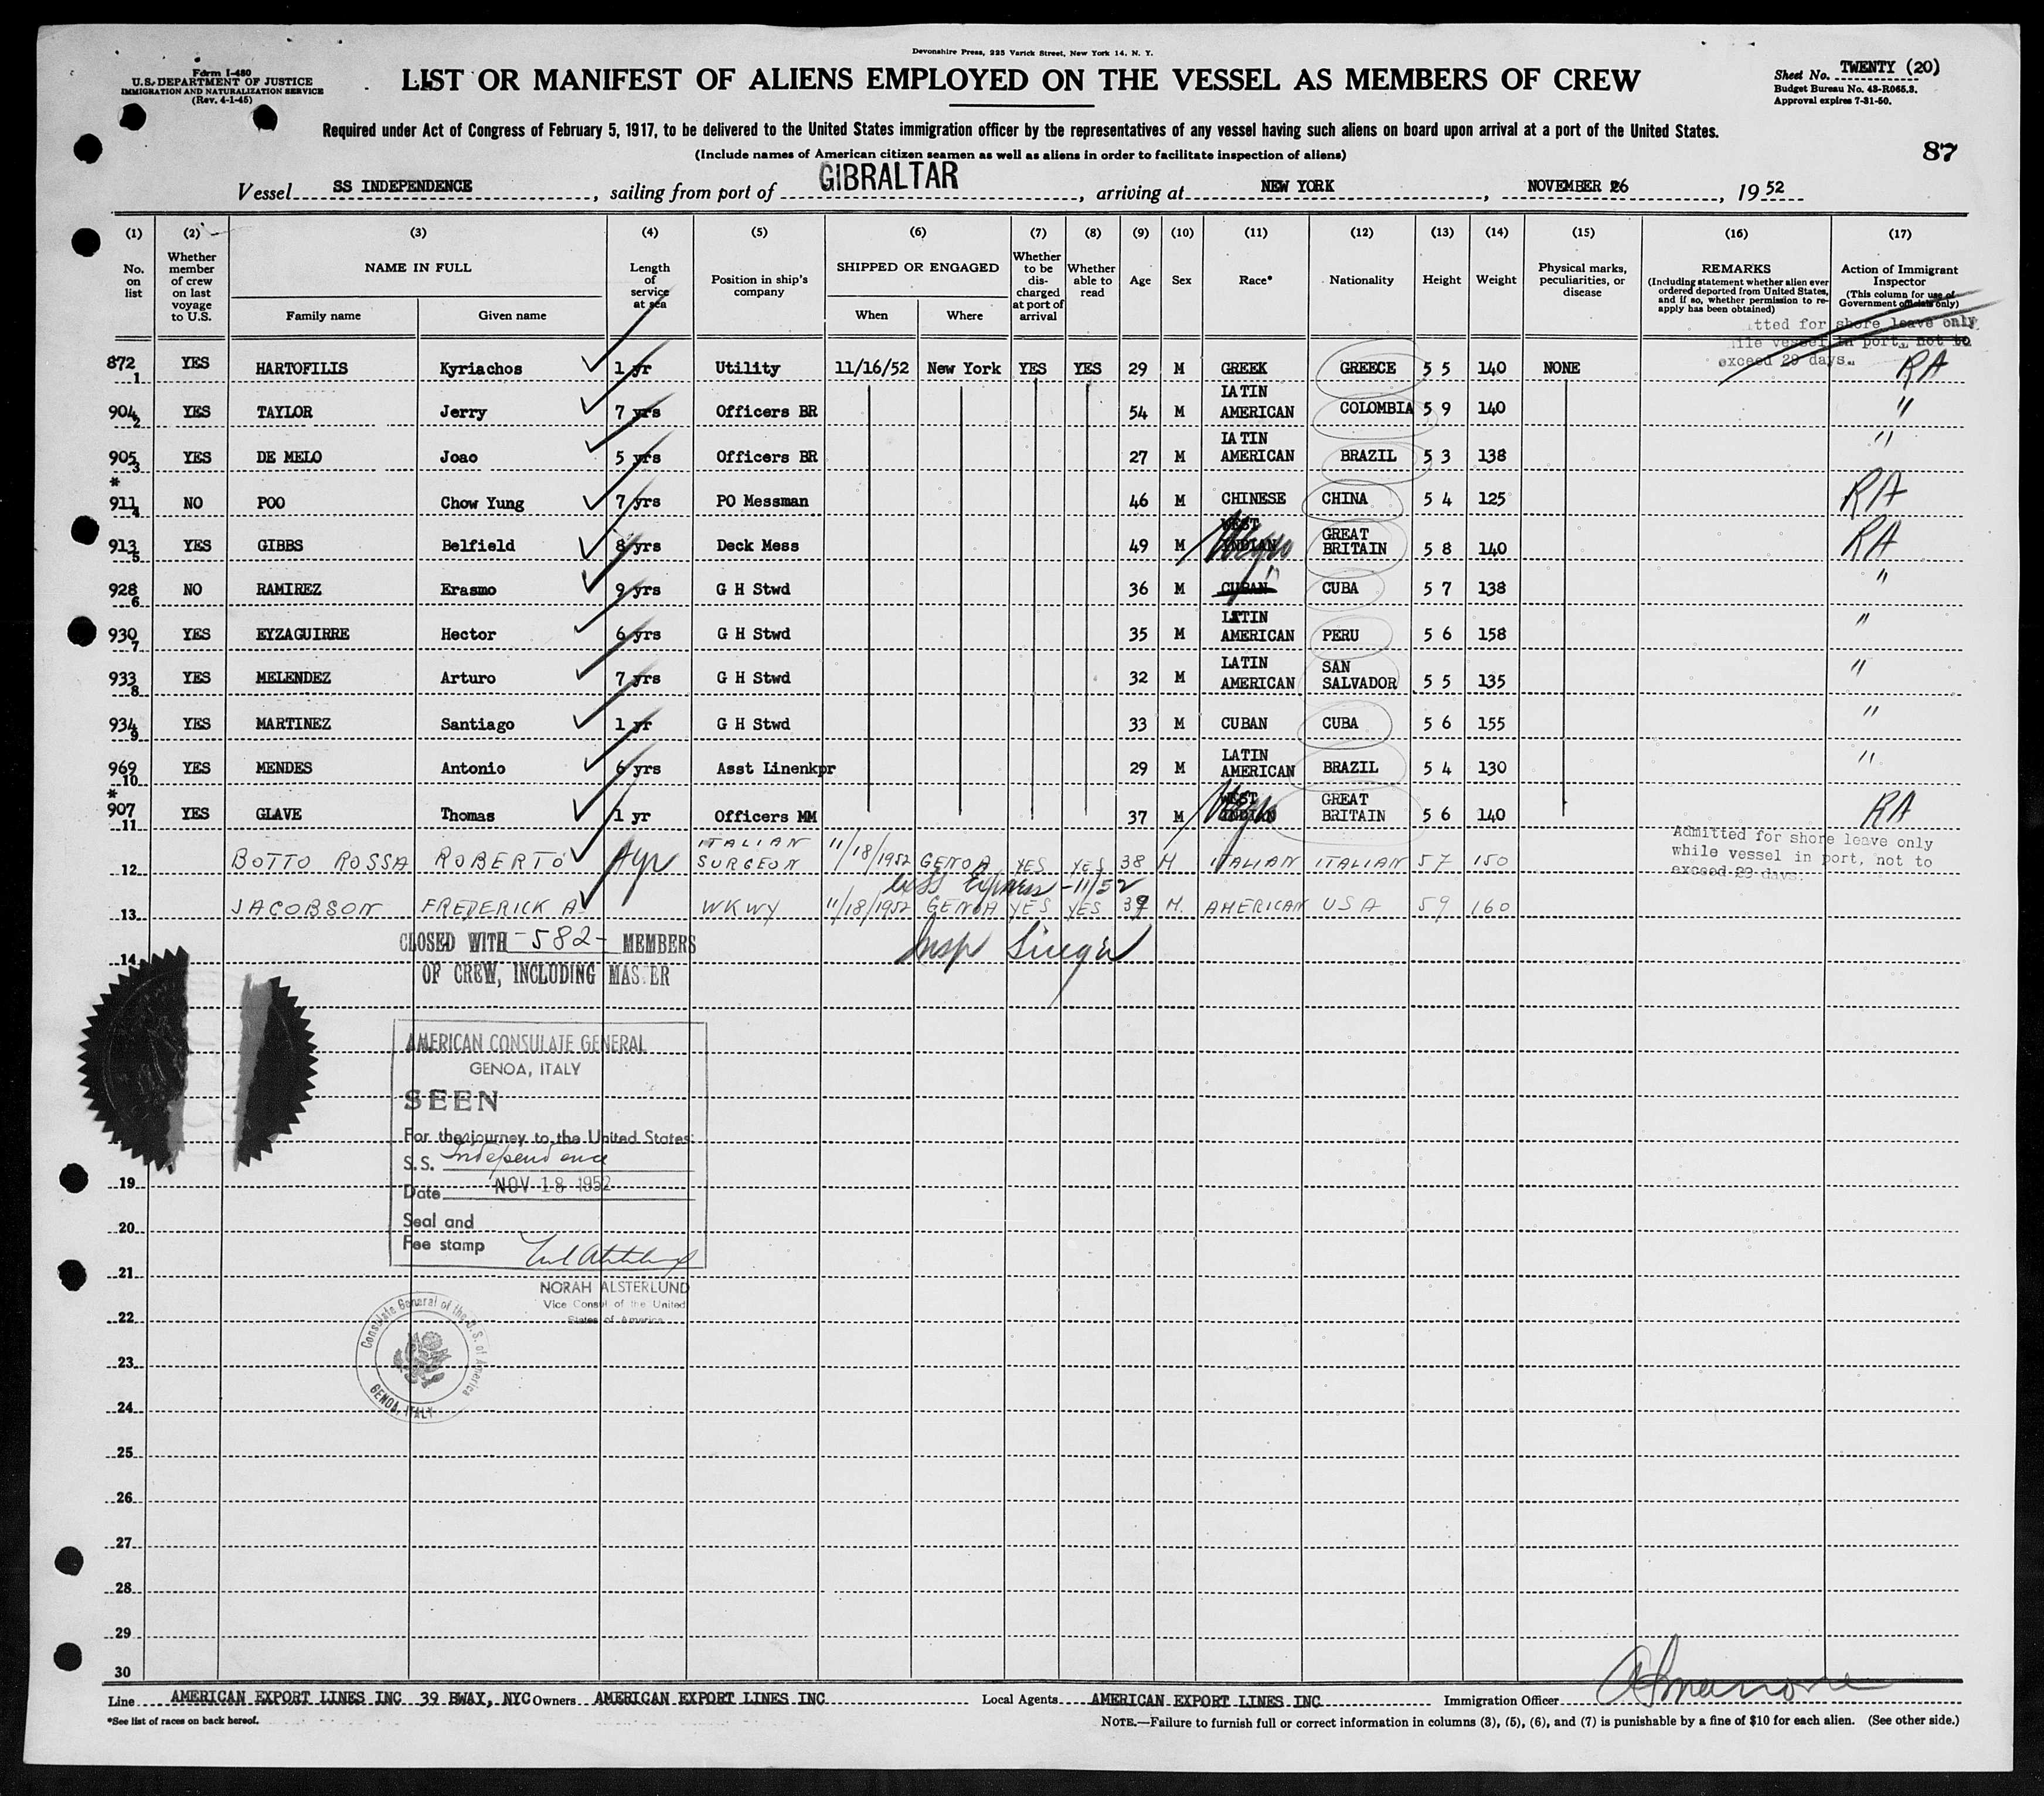 Devonshire Press, 225 Varick Street, New York 14, N. Y.
Form I-480
U.S. DEPARTMENT OF JUSTICE
IMMIGRATION AND NATURALIZATION SERVICE
(Rev. 4-1-45)
LIST OR MANIFEST OF ALIENS EMPLOYED ON THE VESSEL AS MEMBERS OF CREW
Sheet No. TWENTY (20)
Budget Bureau No. 43-R065.3.
Approval expires 7-31-50.
Required under Act of Congress of February 5, 1917, to be delivered to the United States immigration officer by the representatives of any vessel having such aliens on board upon arrival at a port of the United States.
(Include names of American citizen seamen as well as aliens in order to facilitate inspection of aliens)
87
Vessel SS INDEPENDENCE, sailing from port of GIBRALTAR, arriving at NEW YORK, NOVEMBER 26, 1952
(1) (2) (3) (4) (5) (6) (7) (8) (9) (10) (11) (12) (13) (14) (15) (16) (17)
No. on list
Whether member of crew on last voyage to U.S.
NAME IN FULL
Family name
Given name
Length of service at sea
Position in ship's company
SHIPPED OR ENGAGED
When
Where
Whether to be discharged at port of arrival
Whether able to read
Age
Sex
Race*
Nationality
Height
Weight
Physical marks, peculiarities, or disease
REMARKS
(Including statement whether alien ever ordered deported from United States, and if so, whether permission to re-apply has been obtained)
Action of Immigrant Inspector
(This column for use of Government officials only)
itted for shore leave only
ile vessel in port, not to
exceed 29 days.
872 1 YES HARTOFILIS Kyriachos 1 yr Utility 11/16/52 New York YES YES 29 M GREEK GREECE 5 5 140 NONE RA
904 2 YES TAYLOR Jerry 7 yrs Officers BR 54 M LATIN AMERICAN COLOMBIA 5 9 140 "
905 3 YES DE MELO Joao 5 yrs Officers BR 27 M LATIN AMERICAN BRAZIL 5 3 138 "
* 911 4 NO POO Chow Yung 7 yrs PO Messman 46 M CHINESE CHINA 5 4 125 RA
913 5 YES GIBBS Belfield 8 yrs Deck Mess 49 M WEST INDIAN GREAT BRITAIN 5 8 140 RA
928 6 NO RAMIREZ Erasmo 9 yrs G H Stwd 36 M CUBAN " CUBA 5 7 138 "
930 7 YES EYZAGUIRRE Hector 6 yrs G H Stwd 35 M LATIN AMERICAN PERU 5 6 158 "
933 8 YES MELENDEZ Arturo 7 yrs G H Stwd 32 M LATIN AMERICAN SAN SALVADOR 5 5 135 "
934 9 YES MARTINEZ Santiago 1 yr G H Stwd 33 M CUBAN CUBA 5 6 155 "
969 10 YES MENDES Antonio 6 yrs Asst Linenkpr 29 M LATIN AMERICAN BRAZIL 5 4 130 "
* 907 11 YES GLAVE Thomas 1 yr Officers MM 37 M WEST INDIAN GREAT BRITAIN 5 6 140 RA
Admitted for shore leave only
while vessel in port, not to
exceed 29 days.
12 BOTTO ROSSA ROBERTO ITALIAN SURGEON 11/18/1952 GENOA YES YES 38 M ITALIAN ITALIAN 57 150
13 JACOBSON FREDERICK A. WKWY 11/18/1952 GENOA YES YES 39 M. AMERICAN USA 59 160
CLOSED WITH -582- MEMBERS
OF CREW, INCLUDING MASTER
Insp
14
AMERICAN CONSULATE GENERAL
GENOA, ITALY
SEEN
For the journey to the United States:
S.S. Independence
Date NOV 18 1952
Seal and
Fee stamp
NORAH ALSTERLUND
Vice Consul of the United
States of America
Consulate General of the U.S. of America
GENOA, ITALY
19
20
21
22
23
24
25
26
27
28
29
30
Line AMERICAN EXPORT LINES INC 39 BWAY, NYC Owners AMERICAN EXPORT LINES INC Local Agents AMERICAN EXPORT LINES INC Immigration Officer
*See list of races on back hereof.
NOTE.—Failure to furnish full or correct information in columns (3), (5), (6), and (7) is punishable by a fine of $10 for each alien. (See other side.)